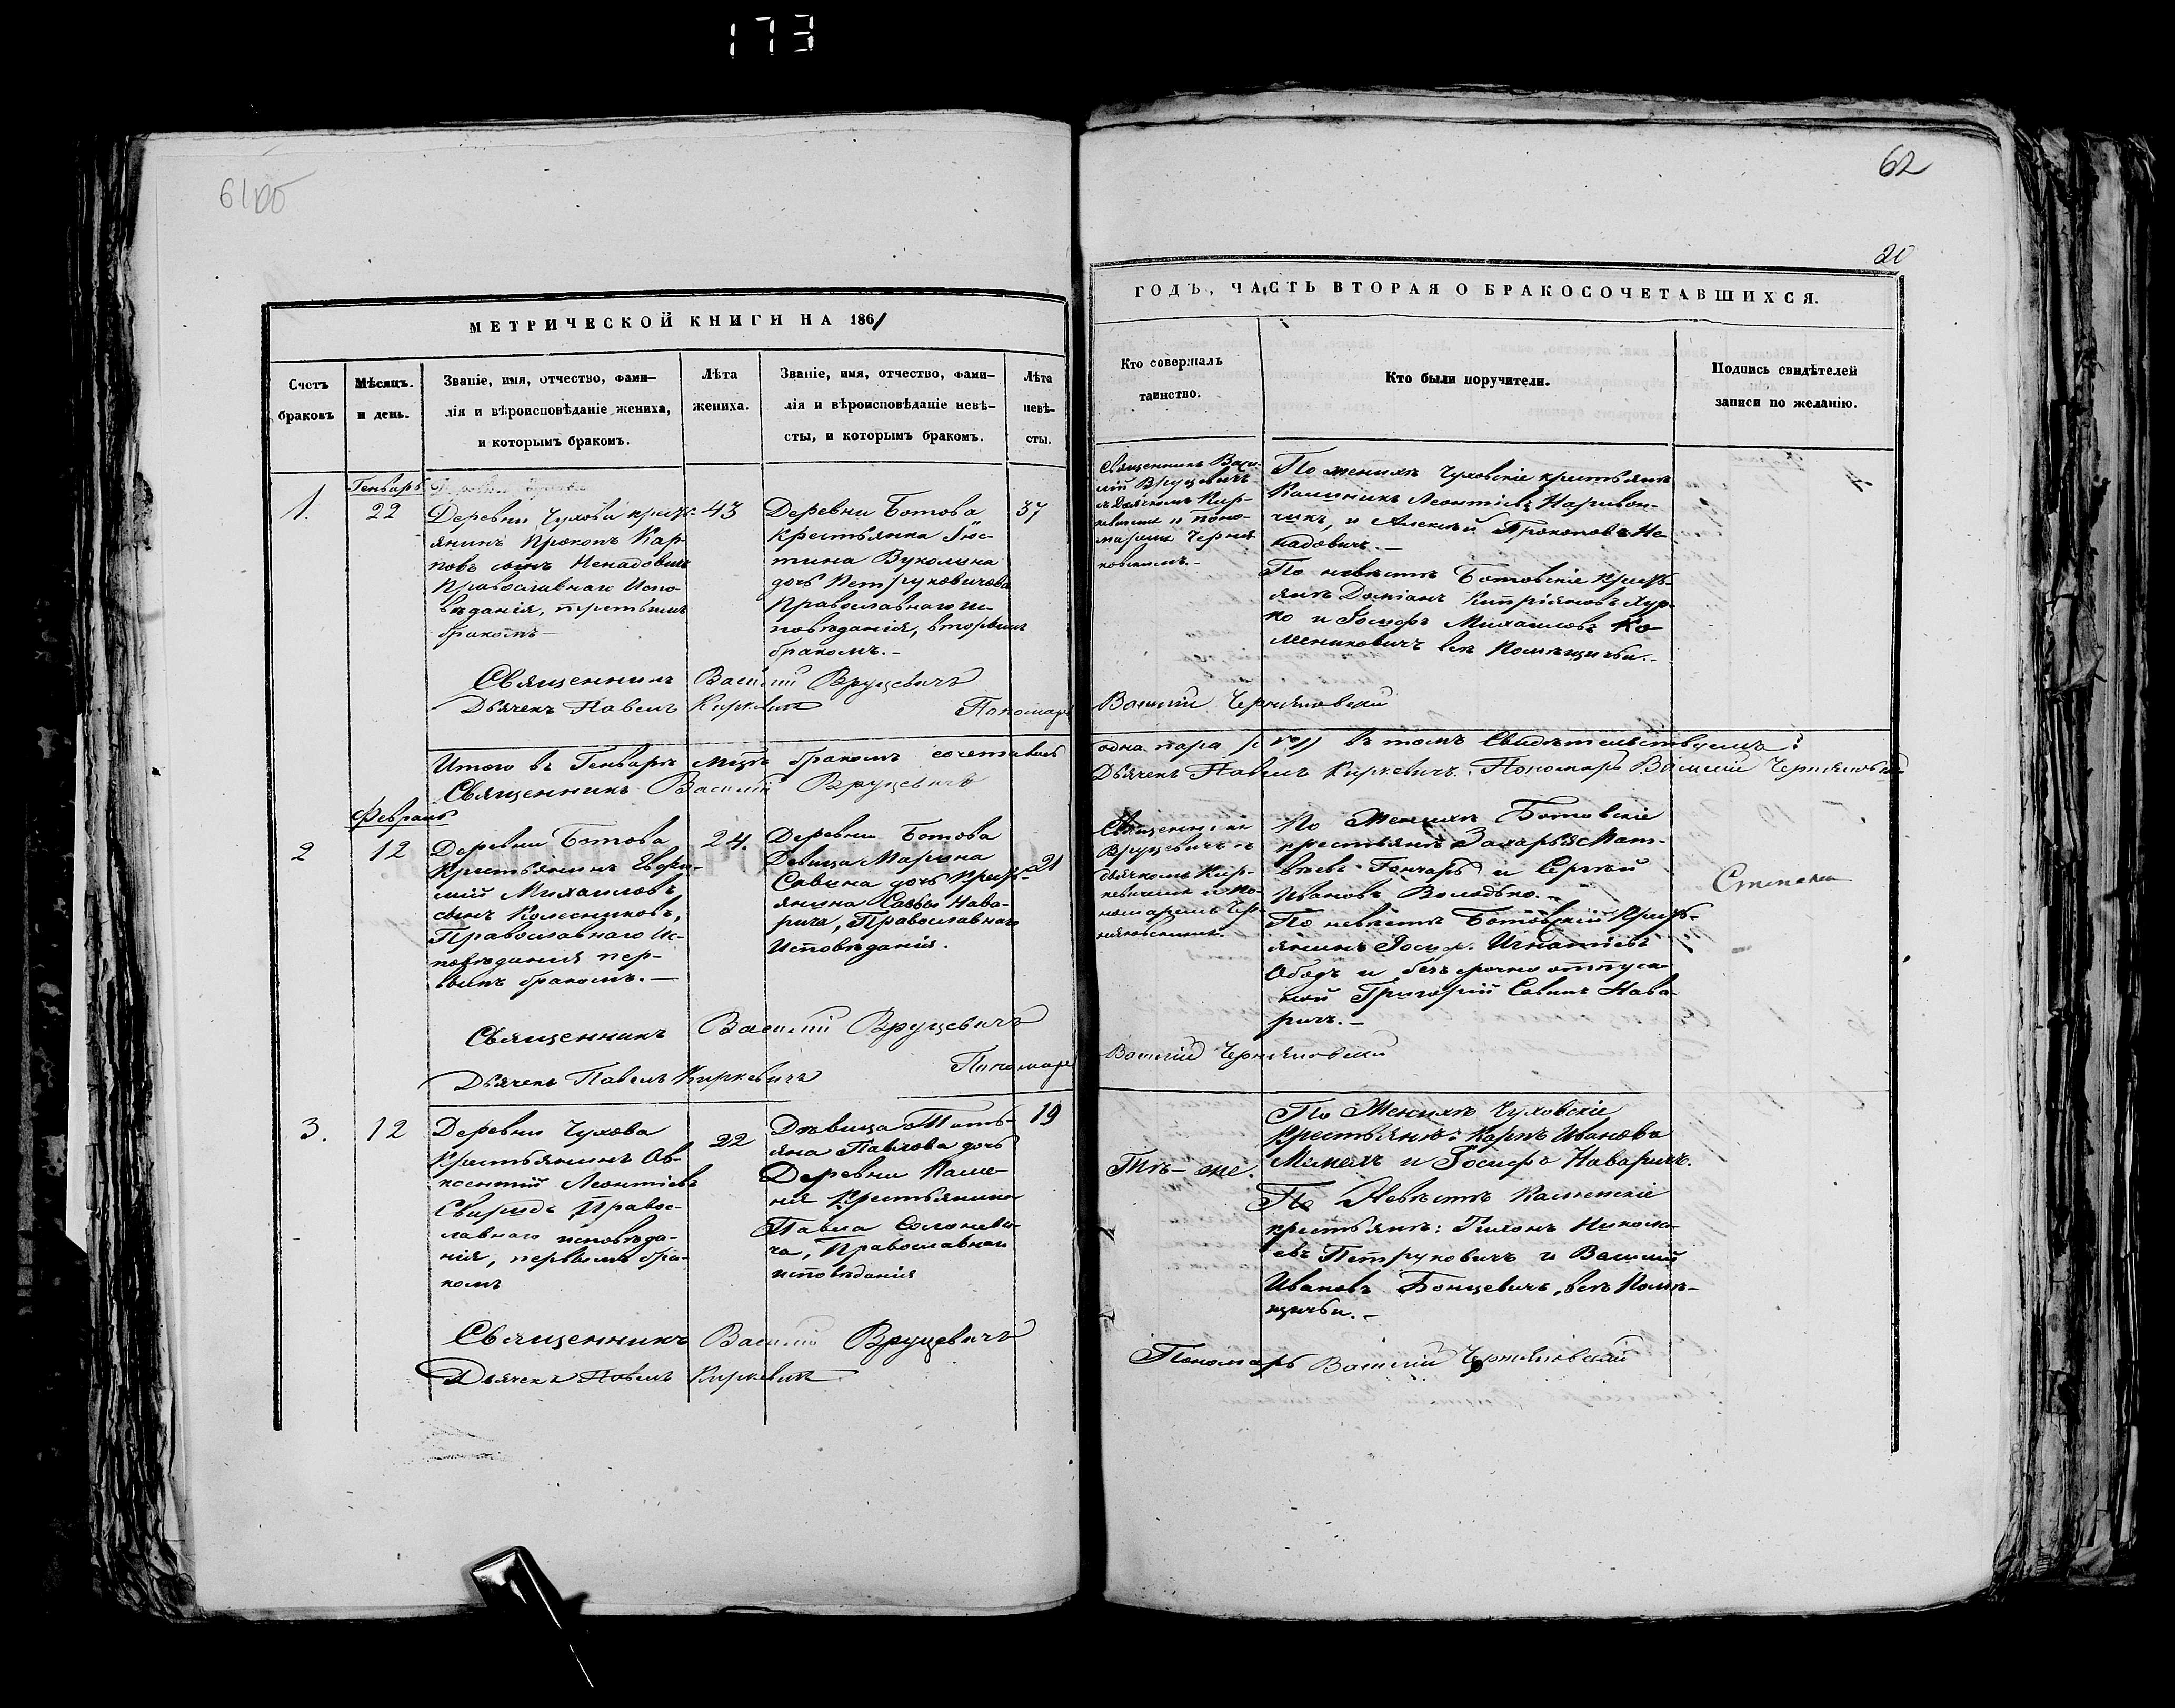 173
61об
62
20
МЕТРИЧЕСКОЙ КНИГИ НА 1861
ГОДЪ, ЧАСТЬ ВТОРАЯ О БРАКОСОЧЕТАВШИХСЯ.
Счетъ
браковъ
Мѣсяцъ.
и день.
Званіе, имя, отчество, фами-
лія и вѣроисповѣданіе жениха,
и которымъ бракомъ.
Лѣта
жениха.
Званіе, имя, отчество, фами-
лія и вѣроисповѣданіе невѣ-
сты, и которымъ бракомъ.
Лѣта
невѣ-
сты.
Кто совершалъ
таинство.
Кто были поручители.
Подпись свидѣтелей
записи по желанію.
1.
Генварь
22
Деревни Чухова крестъ-
янинъ Прокопъ Кар-
повъ сынъ Ненадовичъ
Православнаго Испо-
вѣданія, третьимъ
бракомъ
43
Деревни Ботова
Крестьянка Іюс-
тина Вуколина
дочь Петруковичова
Православнаго ис-
повѣданія, вторымъ
бракомъ.-
37
Священникъ Васи-
лій Вруцевичъ
съ Дьячкомъ Кир-
кевичемъ и поно-
маремъ Черня-
ковскимъ.-
По женихѣ Чуховскіе крестьяне
Калиникъ Леонтіевъ
чикъ, и Алексѣй Прокоповъ Не-
надовичъ.-
По невѣстѣ Ботовскіе крестъ-
яне Даміанъ Кипріяновъ
ко и Іосифъ Михаиловъ Ко-
лениковичъ всѣ Помѣщичьи.-
Священникъ Василій Вруцевичъ
Дьячекъ Павелъ Киркевичъ Пономарь Василій Черняковскій
Итого въ Генварѣ мцѣ бракомъ сочеталась одна пара въ томъ Свидѣтельствуемъ:
Священникъ Василій Вруцевичъ Дьячекъ Павелъ Киркевичъ. Пономарь Василій Черняковскій
2
Февраль
12
Деревни Ботова
Крестьянинъ Евфи-
мій Михаиловъ
сынъ Колесниковъ,
Православнаго Ис-
повѣданія пер-
вымъ бракомъ.-
24.
Деревни Ботова
Девица Марина
Савина дочь крестъ-
янина Саввы Нава-
рича, Православнаго
Исповѣданія.
21
Священникъ
Вруцевичъ съ
дьячкомъ Кир-
кевичемъ и по-
номаремъ Чер-
няковскимъ.
По Женихѣ Ботовскіе
крестьяне Захарія Мат-
вѣевъ Гончаръ и Сергѣй
Ивановъ Володько.-
По невѣстѣ Ботовскій Крестъ-
янинъ Іосиф. Игнатіевъ
Ободъ и безсрочно отпуск-
ной Григорій Савинъ Нава-
ричъ.-
Священникъ Василій Вруцевичъ
Дьячекъ Павелъ Киркевичъ Пономарь Василій Черняковскій
3.
12
Деревни Чухова
Крестьянинъ Ав-
ксентій Леонтіевъ
Свиридъ Правос-
лавнаго исповѣда-
нія, первымъ бра-
комъ
22
Дѣвица Тать-
яна Павлова дочь
Деревни Каме-
ня Крестьянина
Павла Солоневи-
ча, Православнаго
исповѣданія
19
Тѣ-же.
По Женихѣ Чуховскіе
Крестьяне: Карпъ Ивановъ
и Іосифъ Наваричъ.
По Невѣстѣ Каменскіе
крестьяне: Тихонъ Никола-
евъ Петруковичъ и Василій
Ивановъ Бонцевичъ, всѣ Помѣ-
щичьи.-
Священникъ Василій Вруцевичъ
Дьячекъ Павелъ Киркевичъ Пономарь Василій Черняковскій